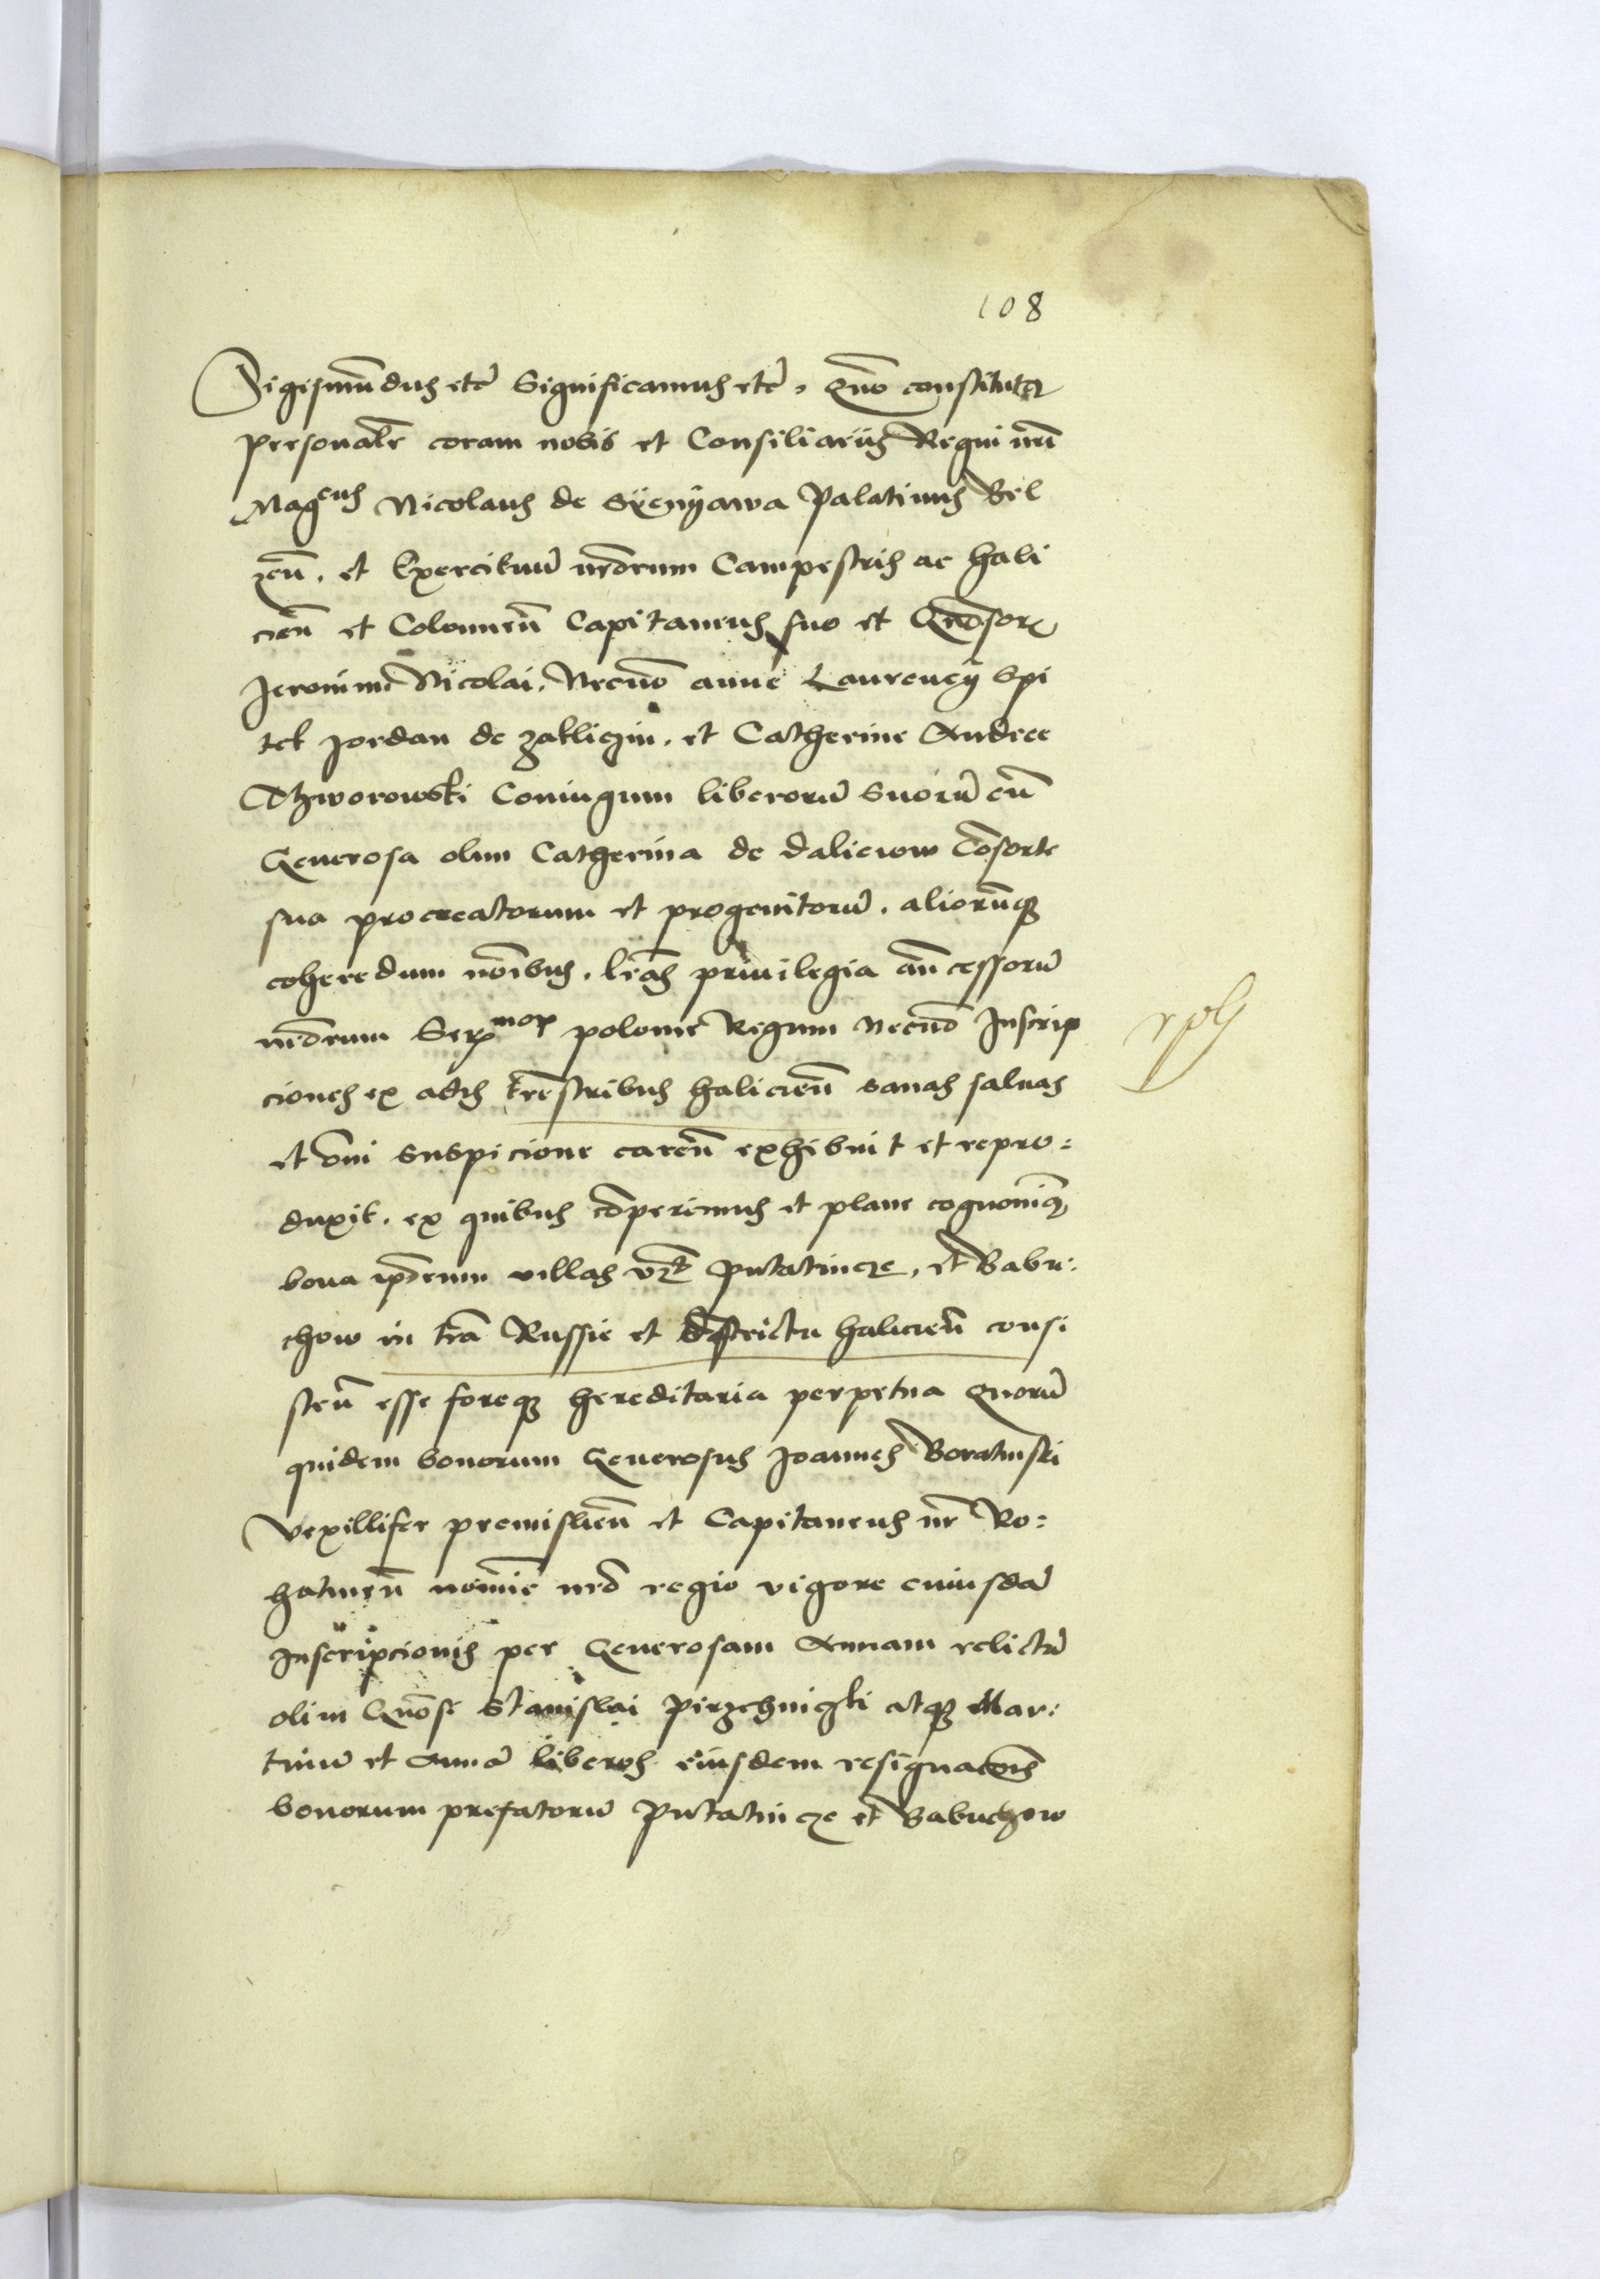 108
Sigismūdus etc̄ Significamus etc̄. Quō constitut9
personalr̄ coram nobis et Consiliariis Regni nr̄i
Mag^cus Nicolaus de Syenyawa Palatinus Bel
zen̄. et Exercituū nr̄orum Campestris ac hali
cien̄ et Colomien̄ Capitaneus suo et Gn̄osor̄
Jeronimi Nicolai. Necnō anne Laurencÿ Spi
tek Jordan de zakliczin. et Catherine Andree
Dzworowski Coniugum liberorū suorū cū
Generosa olim Catherina de daliciow Cōsorte
sua procreatorum et progenitorū. aliorūq3
coheredum noīibus. lr̄as priuilegia an̄cessorū
nr̄orum Ser^mor polonie Regum Necnō Inscrip
ciones ex actis trr̄estribus halicien̄ sanas saluas
et ōni suspicione caren̄ exhibuit et repro:
duxit. ex quibus cōperimus et plane cognouim9
bona ip̄orum villas vz̄ Putatincze, et Babu:
chow in trr̄a Russie et districtu halicien̄ consi
sten̄ esse foreq3 hereditaria perpetua Quorū
quidem bonorum Generosus Joannes Boratinski
Vexillifer premislien̄ et Capitaneus nr̄ Ro:
hatinen̄ nomīe nr̄o regio vigore cuiusdā
Inscripcionis per Generosam Annam relictā
olim Gn̄osi Stanislai atq3 Mar:
tinū et Annā liberos eiusdem resignacōis
bonorum prefatorū Putatincze et Babuchow